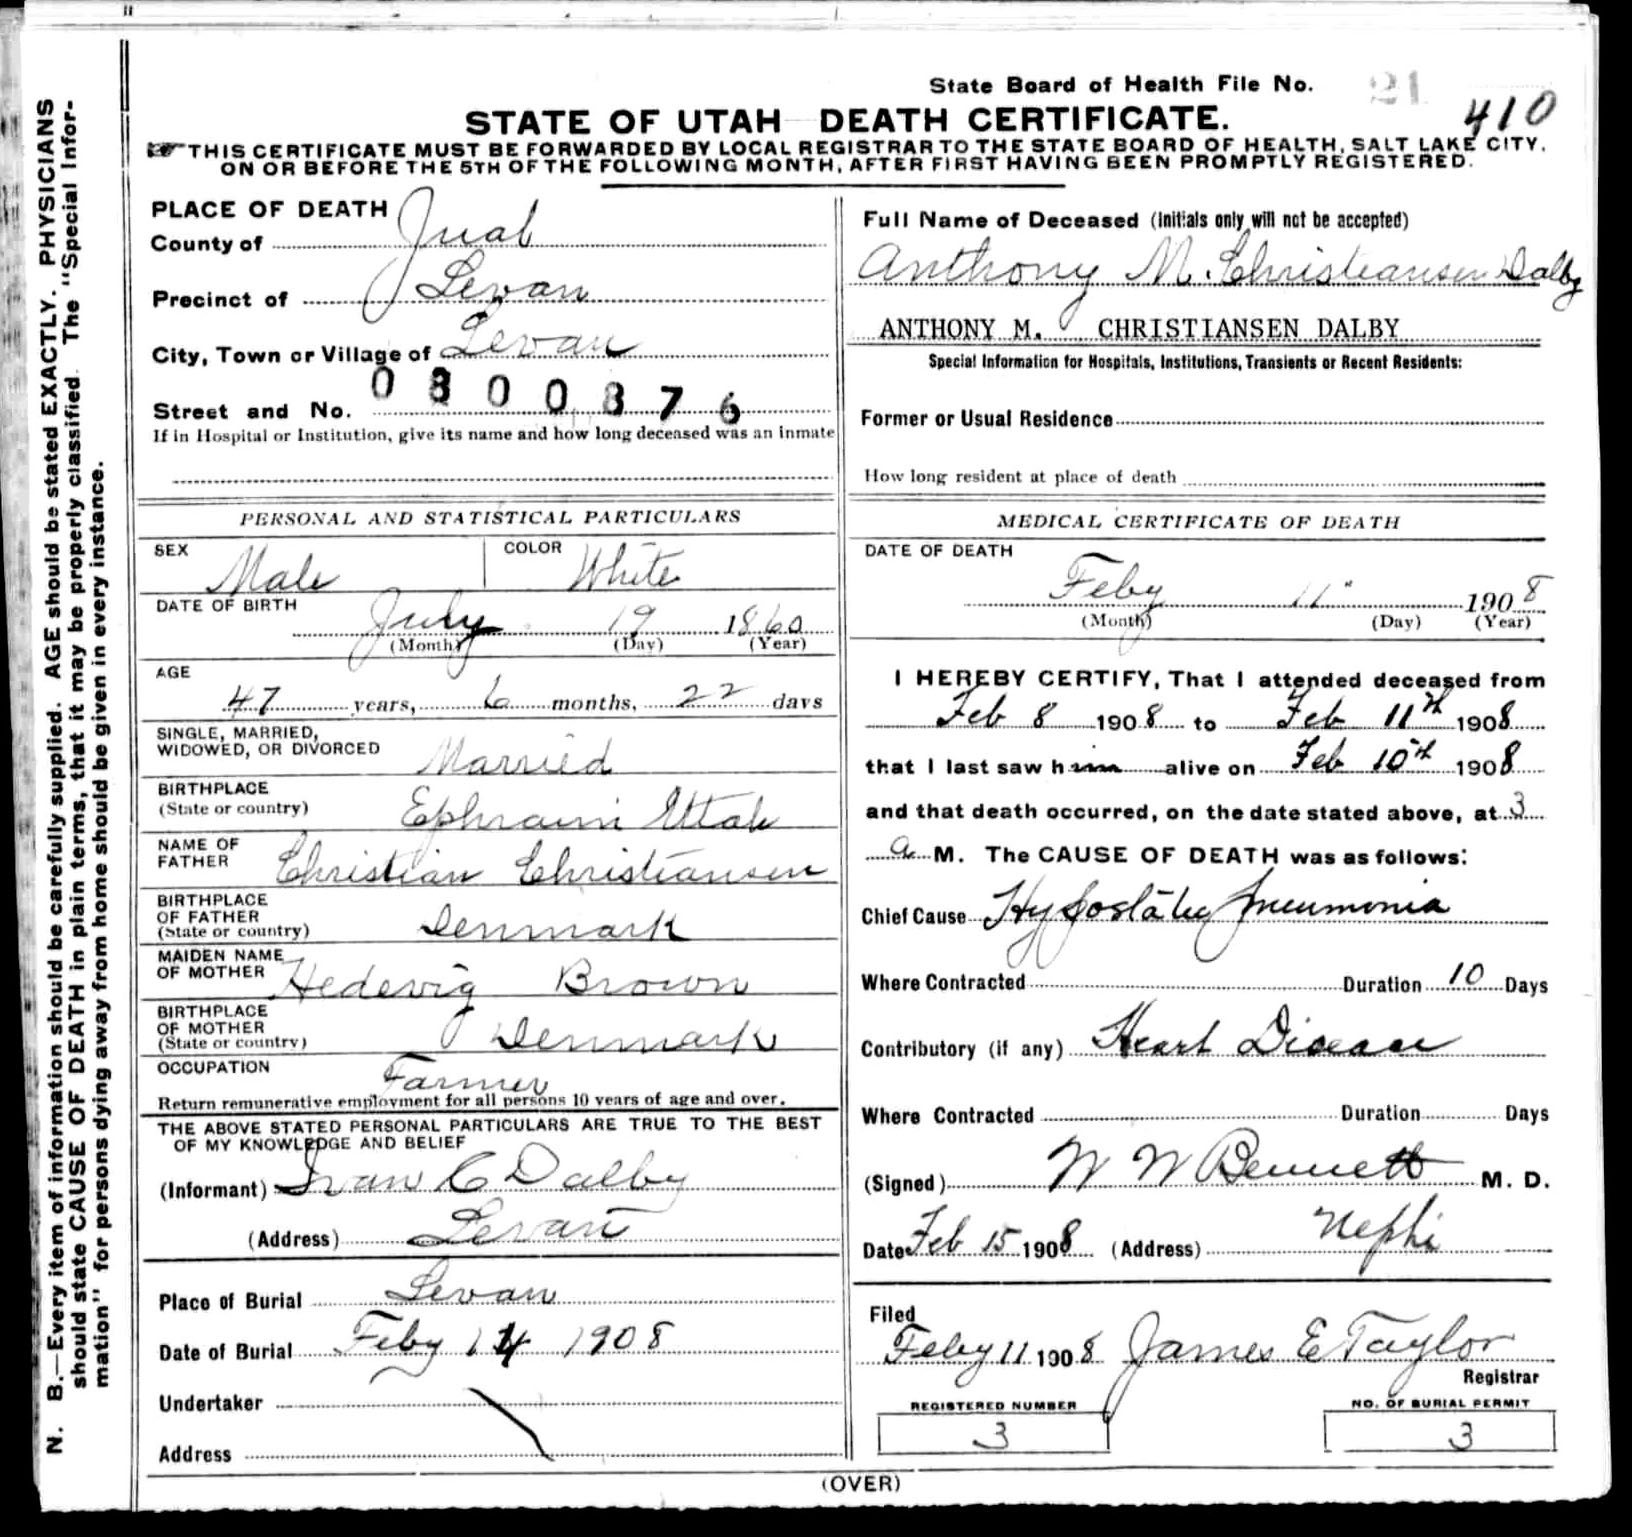 State Board of Health File No. 21 410
STATE OF UTAH DEATH CERTIFICATE.
THIS CERTIFICATE MUST BE FORWARDED BY LOCAL REGISTRAR TO THE STATE BOARD OF HEALTH, SALT LAKE CITY,
ON OR BEFORE THE 5TH OF THE FOLLOWING MONTH, AFTER FIRST HAVING BEEN PROMPTLY REGISTERED.
N. B.—Every item of information should be carefully supplied. AGE should be stated EXACTLY. PHYSICIANS
should state CAUSE OF DEATH in plain terms, that it may be properly classified. The "Special Infor-
mation" for persons dying away from home should be given in every instance.
PLACE OF DEATH
County of Juab
Precinct of Levan
City, Town or Village of Levan
0300876
Street and No.
If in Hospital or Institution, give its name and how long deceased was an inmate
PERSONAL AND STATISTICAL PARTICULARS
SEX Male COLOR White
DATE OF BIRTH July 19 1860
(Month) (Day) (Year)
AGE
47 years, 6 months, 22 days
SINGLE, MARRIED,
WIDOWED, OR DIVORCED Married
BIRTHPLACE
(State or country) Ephraim Utah
NAME OF
FATHER Christian Christiansen
BIRTHPLACE
OF FATHER
(State or country) Denmark
MAIDEN NAME
OF MOTHER Hedevig Brown
BIRTHPLACE
OF MOTHER
(State or country) Denmark
OCCUPATION Farmer
Return remunerative employment for all persons 10 years of age and over.
THE ABOVE STATED PERSONAL PARTICULARS ARE TRUE TO THE BEST
OF MY KNOWLEDGE AND BELIEF
(Informant) Ivan C Dalby
(Address) Levan
Place of Burial Levan
Date of Burial Feby 14 1908
Undertaker
Address
Full Name of Deceased (Initials only will not be accepted)
Anthony M. Christiansen Dalby
ANTHONY M. CHRISTIANSEN DALBY
Special Information for Hospitals, Institutions, Transients or Recent Residents:
Former or Usual Residence
How long resident at place of death
MEDICAL CERTIFICATE OF DEATH
DATE OF DEATH
Feby 11" 1908
(Month) (Day) (Year)
I HEREBY CERTIFY, That I attended deceased from
Feb 8 1908 to Feb 11th 1908
that I last saw him alive on Feb 10th 1908
and that death occurred, on the date stated above, at 3
a M. The CAUSE OF DEATH was as follows:
Chief Cause Hypostatic pneumonia
Where Contracted Duration 10 Days
Contributory (if any) Heart Disease
Where Contracted Duration Days
(Signed) W W Bennett M. D.
Date Feb 15 1908 (Address) Nephi
Filed
Feby 11 1908 James E Taylor
Registrar
REGISTERED NUMBER
3
NO. OF BURIAL PERMIT
3
(OVER)